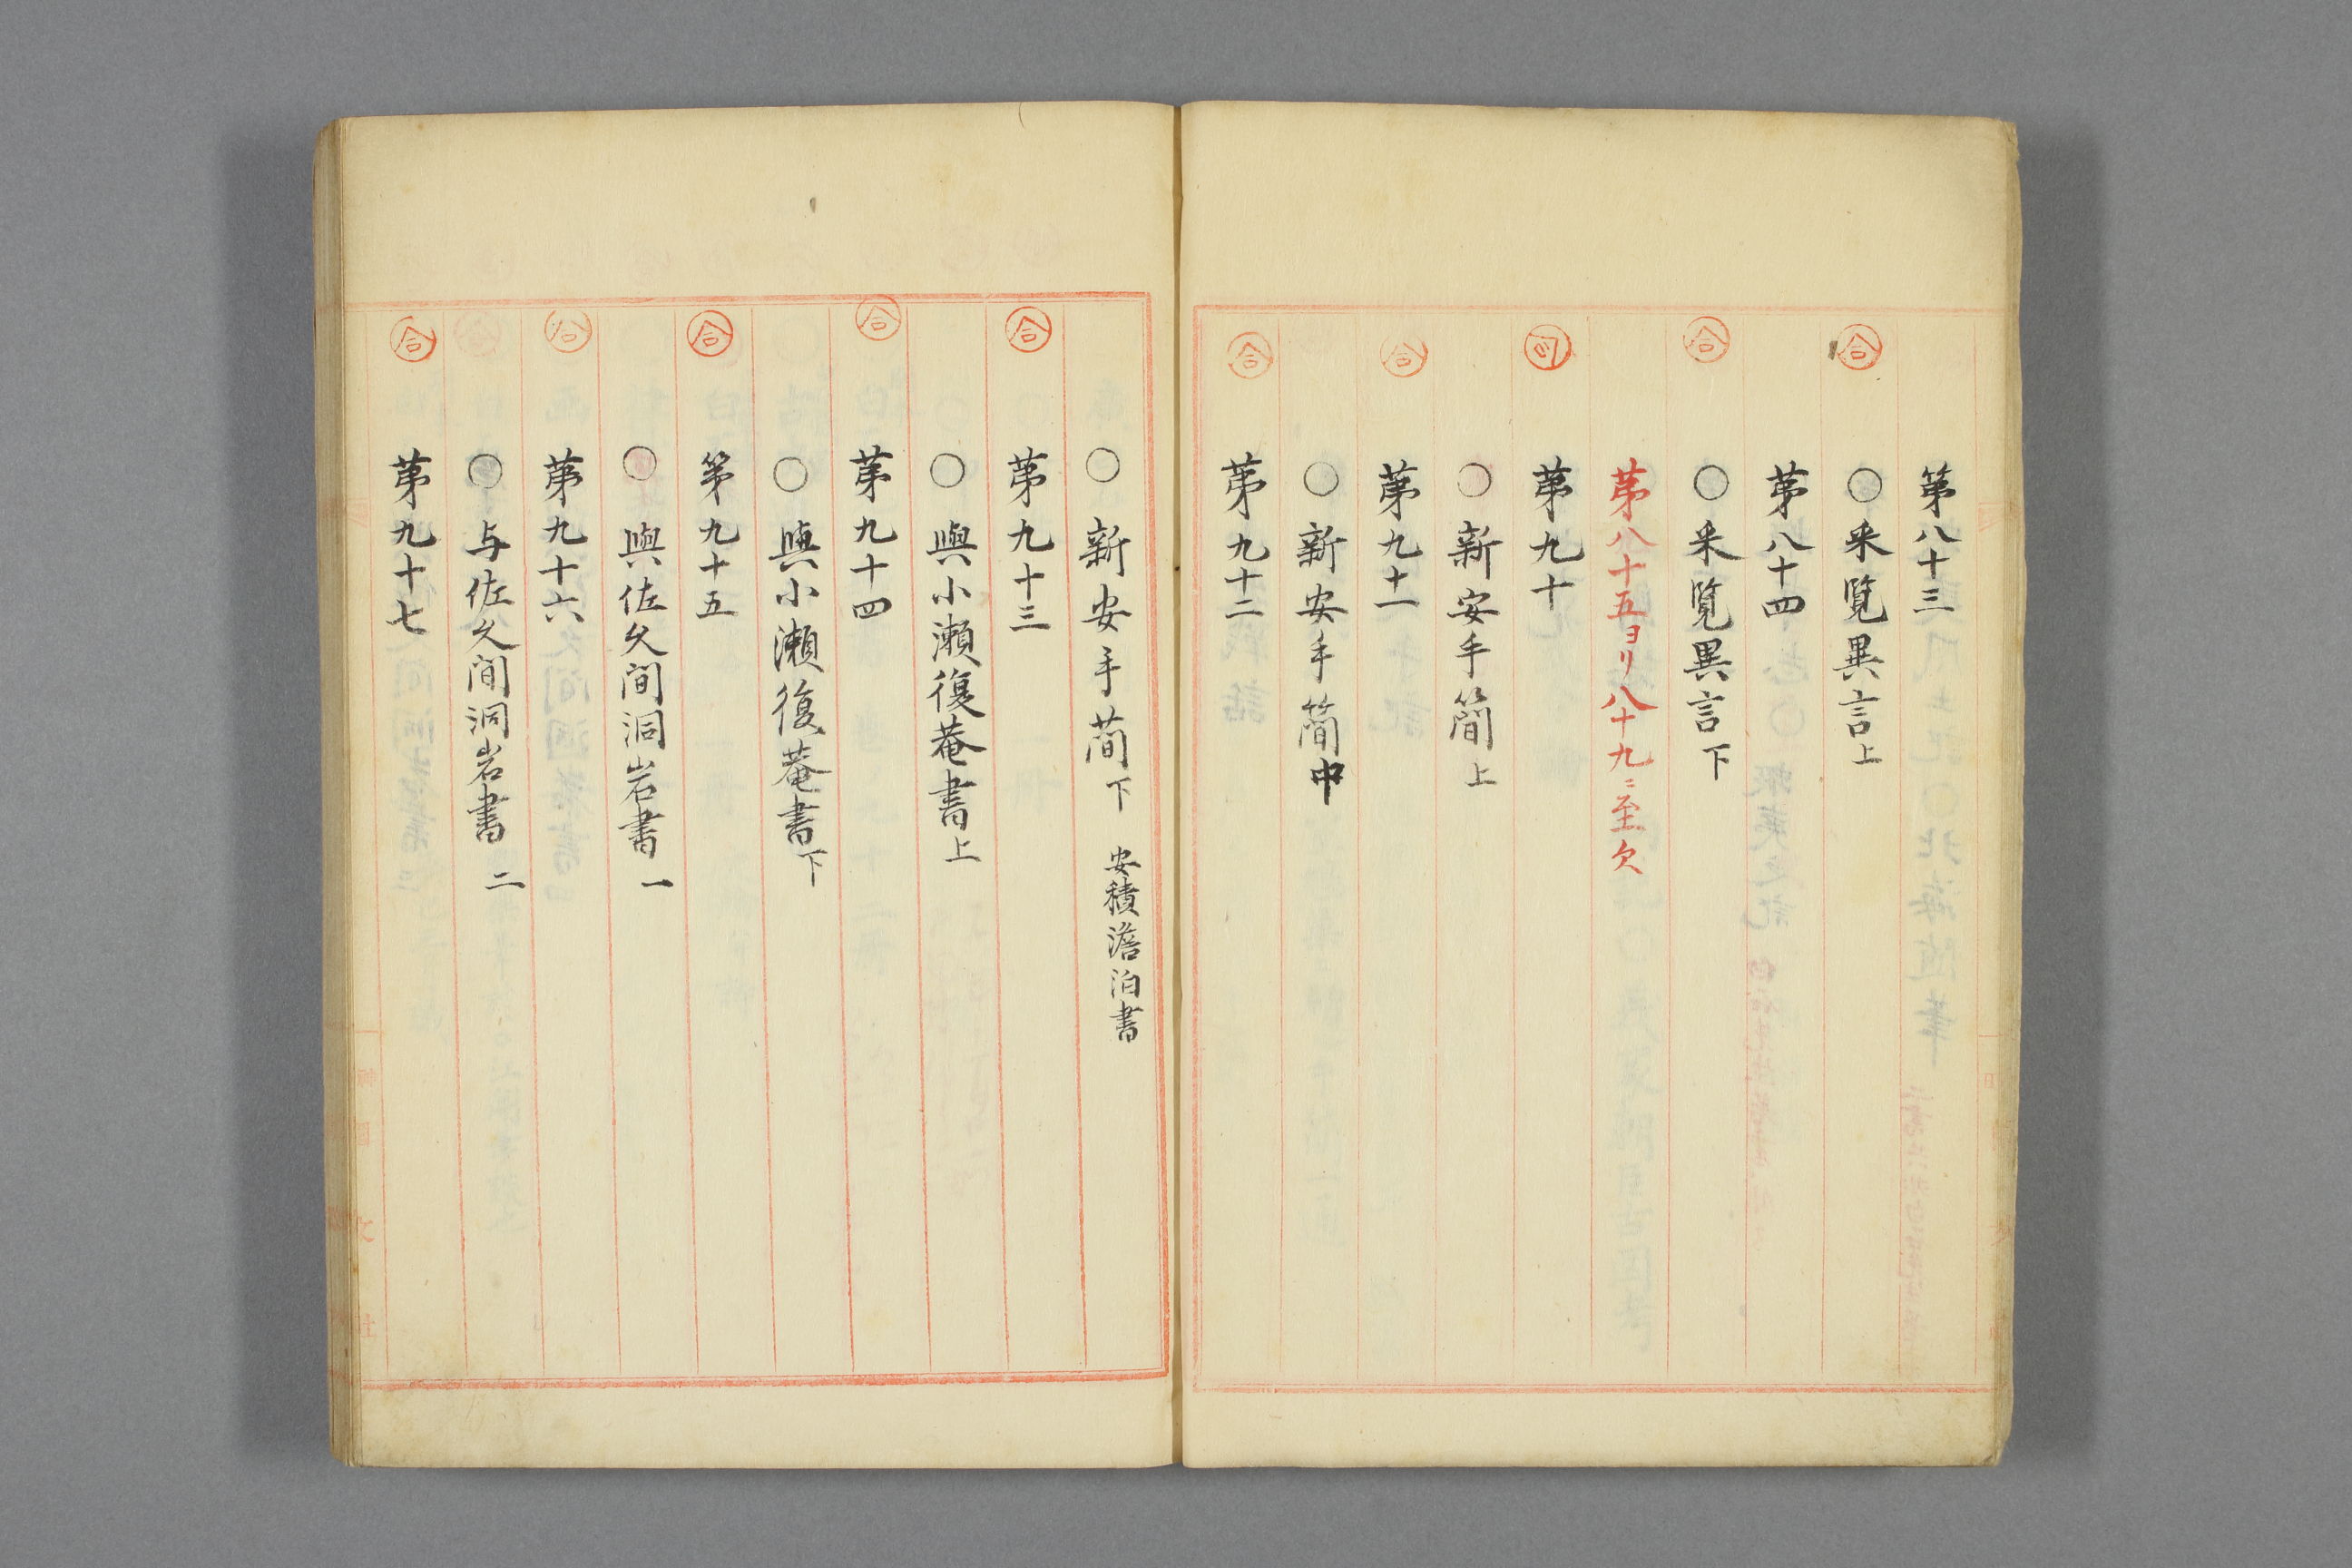 第八十三
合
○采覧異言上
第八十四
合
○采覧異言下
第八十五ヨリ八十九ニ至欠
第九十
合
○新安手簡上
第九十一
合
○新安手簡中
第九十二
合
○新安手簡下 安積澹泊書
第九十三
合
○與小瀬復菴書上
第九十四
合
○與小瀬復菴書下
第九十五
合
○與佐久间洞岩書 一
第九十六
合
○与佐久间洞岩書 二
第九十七
合